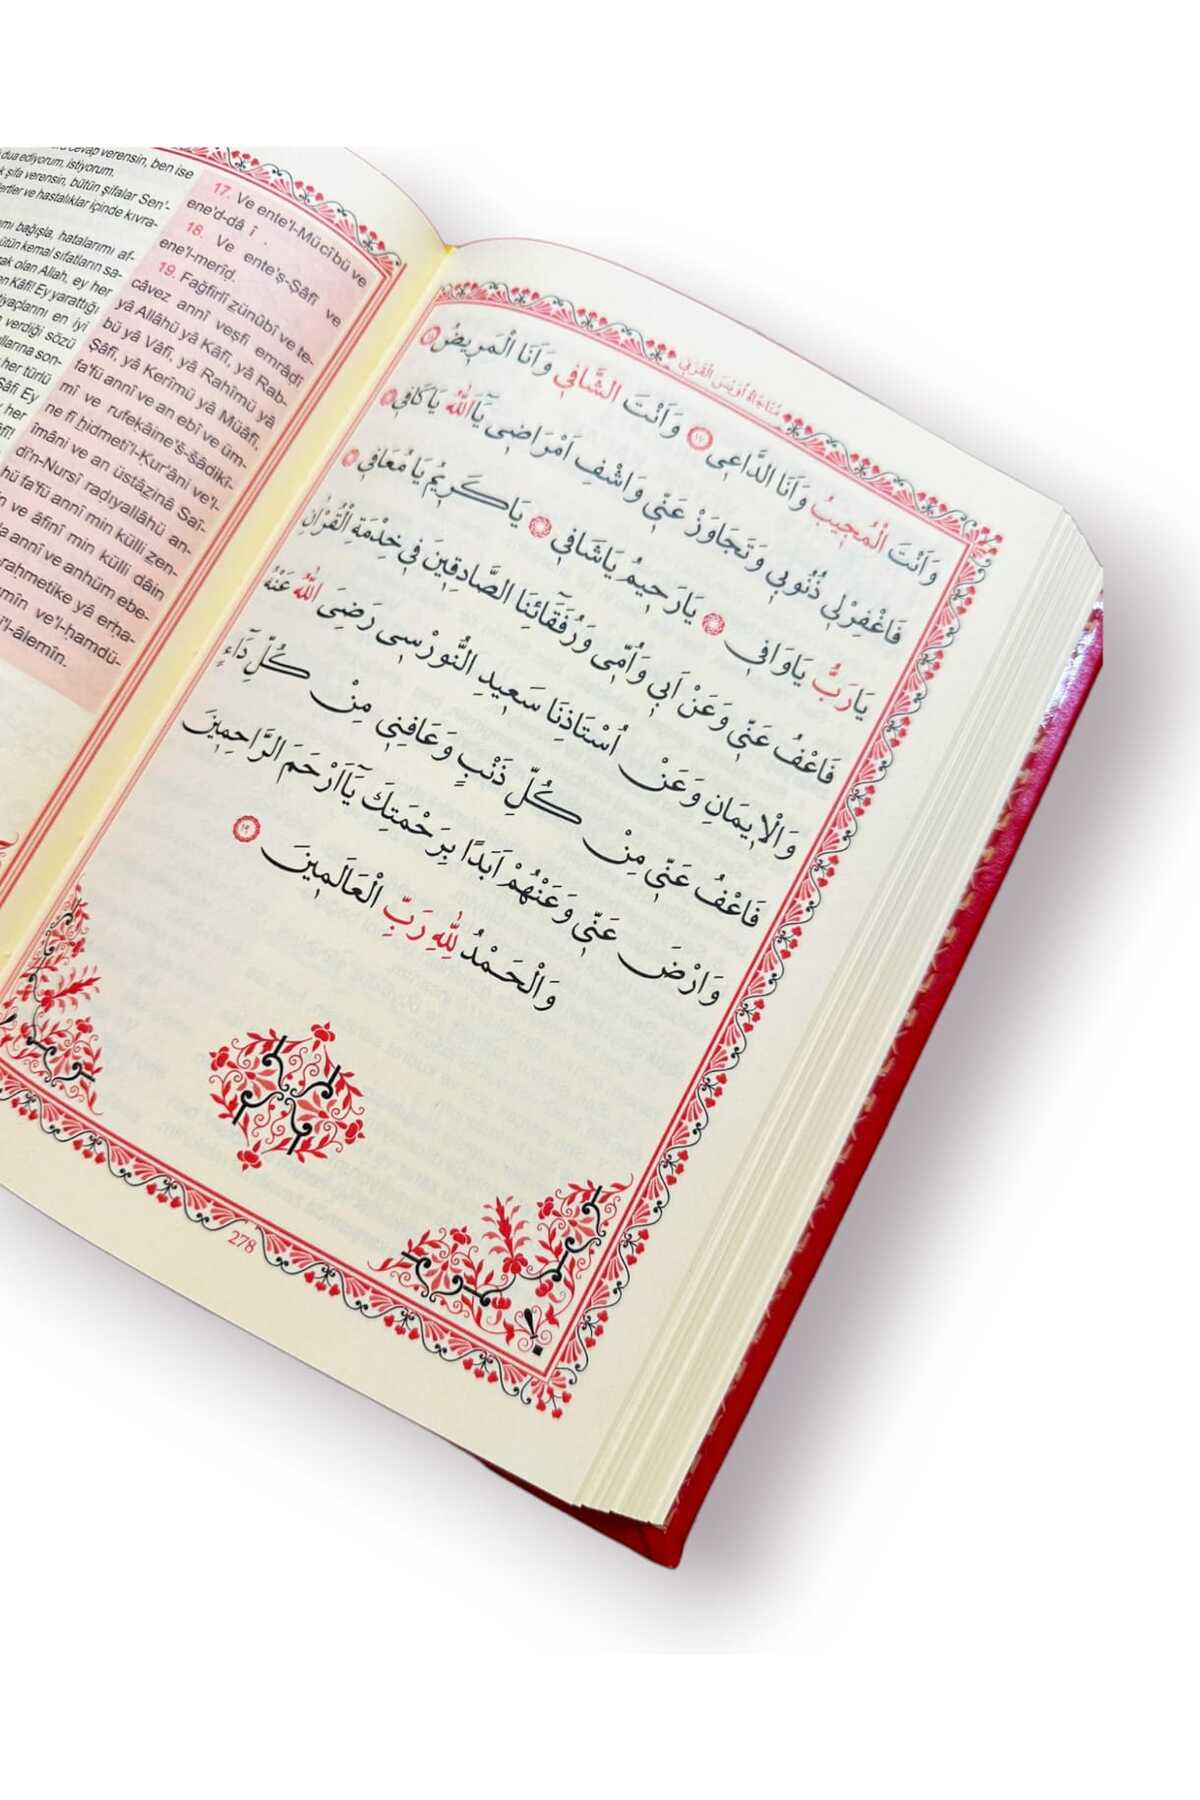 cevap verensin, ben ise
dua ediyorum, istiyorum.
şifa verensin, bütün şifalar Sen'-
dertler ve hastalıklar içinde kıvra-
bağışla, hatalarımı af-
bütün kemal sıfatların sa-
olan Allah, ey her
Kâfî! Ey yarattığı
ihtiyaçlarını en iyi
verdiği sözü
kullarına son-
her türlü
Şâfî! Ey
her
17. Ve ente'l-Mücîbü ve
ene'd-dâ î .
18. Ve ente'ş-Şâfî ve
ene'l-merîd.
19. Fağfirlî zünûbî ve te-
câvez annî veşfi emrâdî
yâ Allâhü yâ Kâfî, yâ Rab-
bü yâ Vâfî, yâ Rahîmü yâ
Şâfî, yâ Kerîmü yâ Müâfî,
fa'fü annî ve an ebî ve üm-
mî ve rufekâine'ş-şâdikî-
ne fî hidmeti'l-Kur'âni ve'l-
îmâni ve an üstâzinâ Saî-
di'n-Nursî radıyallâhü an-
hü fa'fü annî min külli zen-
ve âfinî min külli dâin
annî ve anhüm ebe-
rahmetike yâ erha-
ve'l-hamdü-
'l-âlemîn.
مُنَاجَاةُ اُوَيْسَ الْقَرَنِي
وَاَنْتَ الْمُجٖيبُ وَاَنَا الدَّاعٖى ١٧ وَاَنْتَ الشَّافٖي وَاَنَا الْمَرٖيضُ ١٨
فَاغْفِرْلٖى ذُنُوبٖي وَتَجَاوَزْ عَنّٖي وَاشْفِ اَمْرَاضٖى يَٓا اَللّٰهُ يَا كَافٖي
يَا رَبُّ يَا وَافٖي يَا رَحٖيمُ يَا شَافٖي يَا كَرٖيمُ يَا مُعَافٖي
فَاعْفُ عَنّٖي وَعَنْ اَبٖي وَاُمّٖى وَرُفَقَٓائِنَا الصَّادِقٖينَ فٖي خِدْمَةِ الْقُرْاٰنِ
وَالْاٖيمَانِ وَعَنْ اُسْتَاذِنَا سَعٖيدِ النُّورْسٖى رَضِىَ اللّٰهُ عَنْهُ
فَاعْفُ عَنّٖي مِنْ كُلِّ ذَنْبٍ وَعَافِنٖي مِنْ كُلِّ دَٓاءٍ
وَارْضَ عَنّٖي وَعَنْهُمْ اَبَدًا بِرَحْمَتِكَ يَٓا اَرْحَمَ الرَّاحِمٖينَ
وَالْحَمْدُ لِلّٰهِ رَبِّ الْعَالَمٖينَ ١٩
278